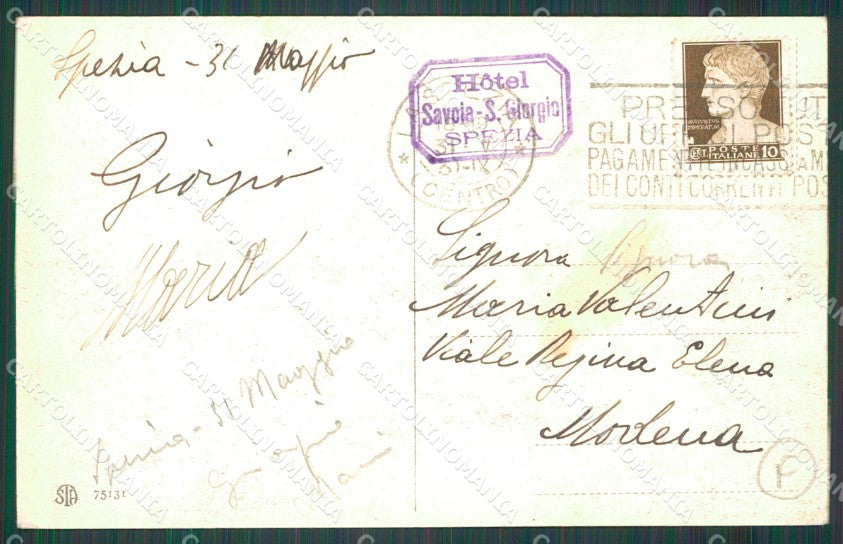 Spezia - 31 Maggio
Giorgio
Maria
Spezia - 31 Maggio
Giorgio
STA
75131
Hôtel
Savoia - S. Giorgio
SPEZIA
31 V
(CENTRO)
AVGVSTVS
IMPERATOR
POSTE
ITALIANE 10
GLI UFFICI POST
PAGAMENTI E INCASSI A M
DEI CONTI CORRENTI POS
Signora Signora
Maria Valentini
Viale Regina Elena
Modena
F
CARTOLINOMANIA